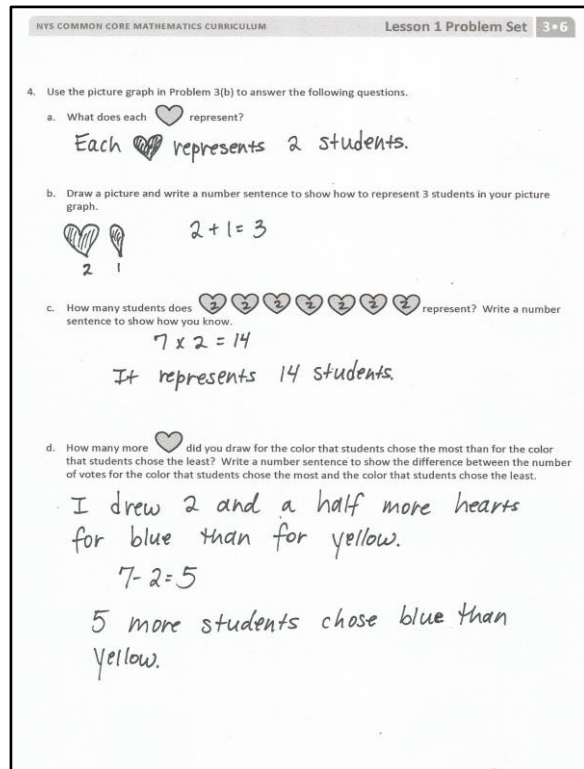 NYS COMMON CORE MATHEMATICS CURRICULUM Lesson 1 Problem Set 3•6
4. Use the picture graph in Problem 3(b) to answer the following questions.
a. What does each represent?
Each represents 2 students.
b. Draw a picture and write a number sentence to show how to represent 3 students in your picture
graph.
2 + 1 = 3
2 1
c. How many students does 2 2 2 2 2 2 2 represent? Write a number
sentence to show how you know.
7 x 2 = 14
It represents 14 students.
d. How many more did you draw for the color that students chose the most than for the color
that students chose the least? Write a number sentence to show the difference between the number
of votes for the color that students chose the most and the color that students chose the least.
I drew 2 and a half more hearts
for blue than for yellow.
7-2=5
5 more students chose blue than
yellow.